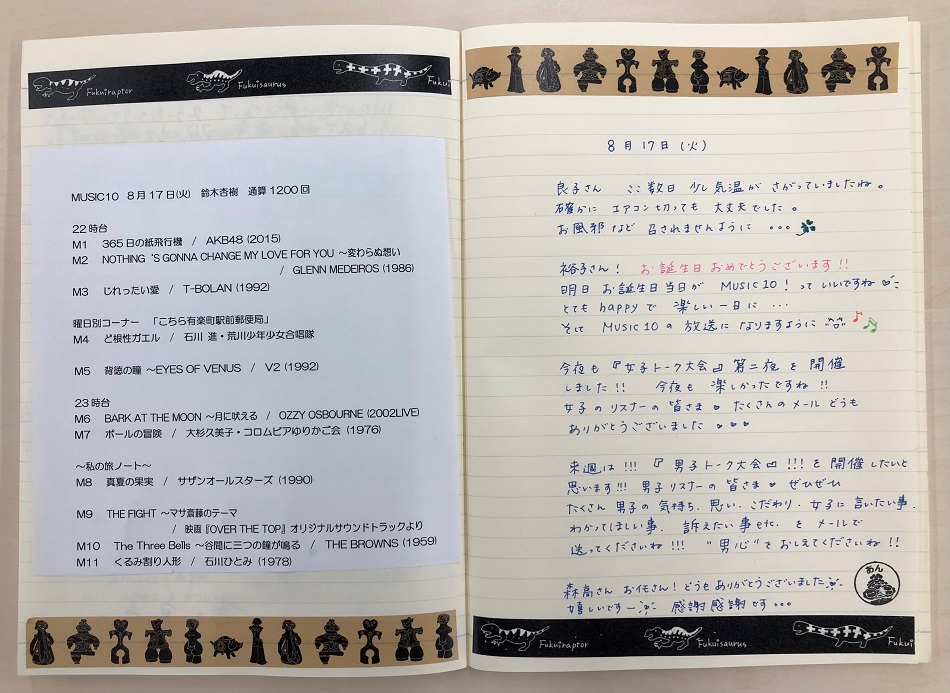 Fukuiraptor
Fukuisaurus
Fukui
MUSIC10 8月17日(火) 鈴木杏樹 通算1200回
22時台
M1 365日の紙飛行機 / AKB48 (2015)
M2 NOTHING‘S GONNA CHANGE MY LOVE FOR YOU ～変わらぬ想い
/ GLENN MEDEIROS (1986)
M3 じれったい愛 / T-BOLAN (1992)
曜日別コーナー 「こちら有楽町駅前郵便局」
M4 ど根性ガエル / 石川 進・荒川少年少女合唱隊
M5 背徳の瞳 ～EYES OF VENUS / V2 (1992)
23時台
M6 BARK AT THE MOON ～月に吠える / OZZY OSBOURNE (2002LIVE)
M7 ポールの冒険 / 大杉久美子・コロムビアゆりかご会 (1976)
～私の旅ノート～
M8 真夏の果実 / サザンオールスターズ (1990)
M9 THE FIGHT ～マサ斎藤のテーマ
/ 映画『OVER THE TOP』オリジナルサウンドトラックより
M10 The Three Bells ～谷間に三つの鐘が鳴る / THE BROWNS (1959)
M11 くるみ割り人形 / 石川ひとみ (1978)
8月17日(火)
良子さん ここ数日 少し気温が さがっていましたね。
確かに エアコン切っても 大丈夫でした。
お風邪など 召されませんように …。
裕子さん! お誕生日おめでとうございます!!
明日 お誕生日当日が Music10! って いいですね
とても happyで 楽しい一日に …
そして Music10の 放送に なりますように
今夜も 『女子トーク大会』 第二夜 を 開催
しました!! 今夜も 楽しかったですね!!
女子のリスナーの 皆さま たくさんのメール どうも
ありがとうございました
来週は!!! 『男子トーク大会』!!! を 開催したいと
思います!!! 男子リスナーの 皆さま ぜひぜひ
たくさん 男子の 気持ち、思い、こだわり、女子に言いたい事、
わかってほしい事、訴えたい事etc. を メールで
送ってくださいね!!! “男心”を おしえてくださいね!!
森高さん お仕さん! どうも ありがとうございました
嬉しいですー 感謝感謝です…
あん
Fukuiraptor
Fukuisaurus
Fukui